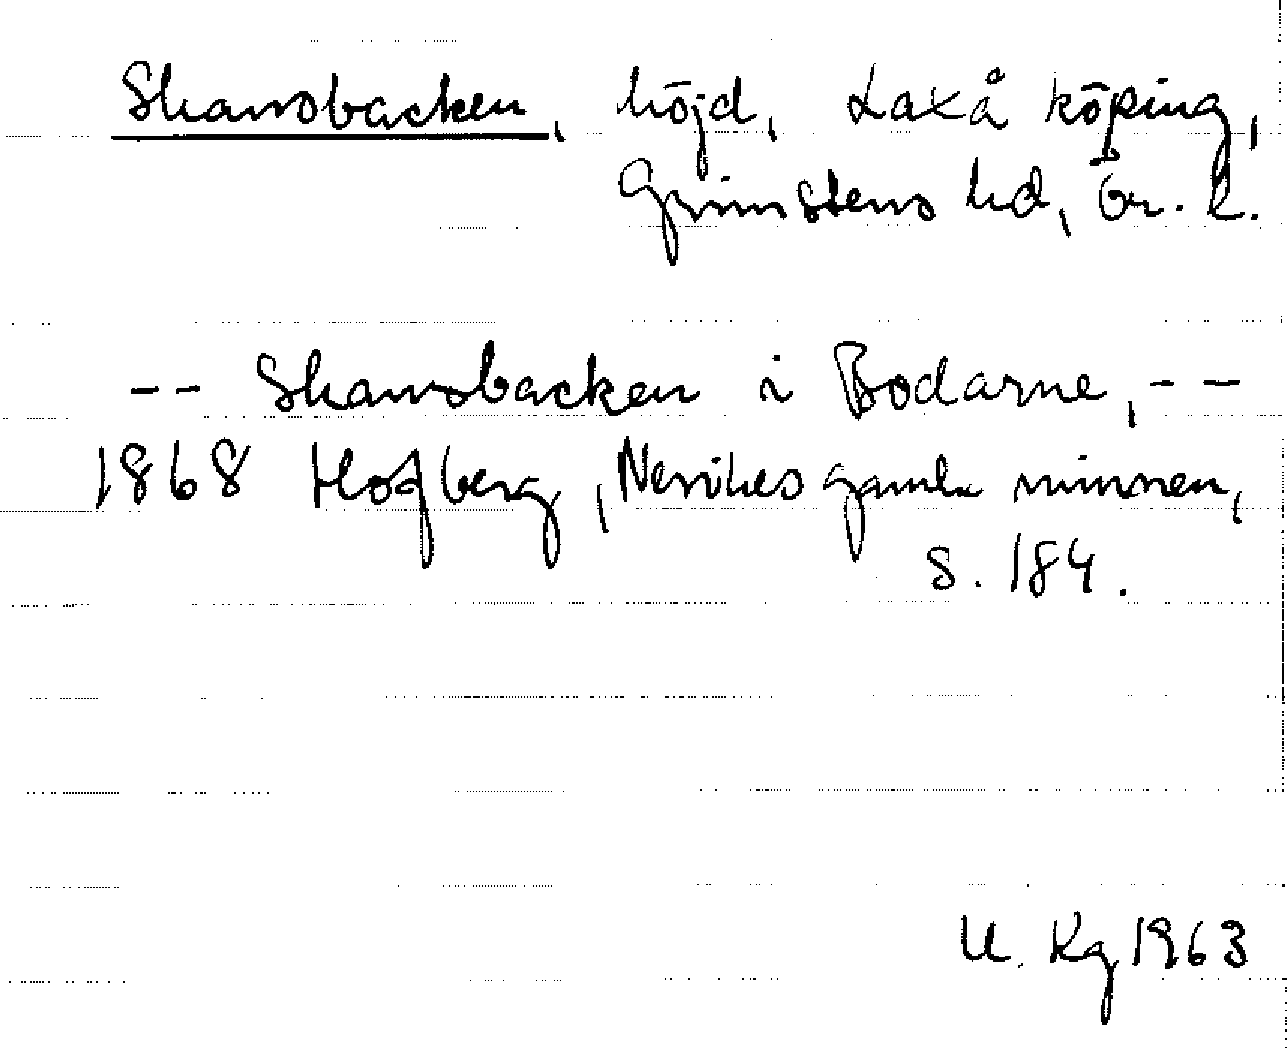 Skansbacken, höjd, Laxå köping,
Grimstens hd, Ör. l.
-- Skansbacken i Bodarne, --
1868 Hofberg, Nerikes gamla minnen,
s. 184.
U. Kg 1963